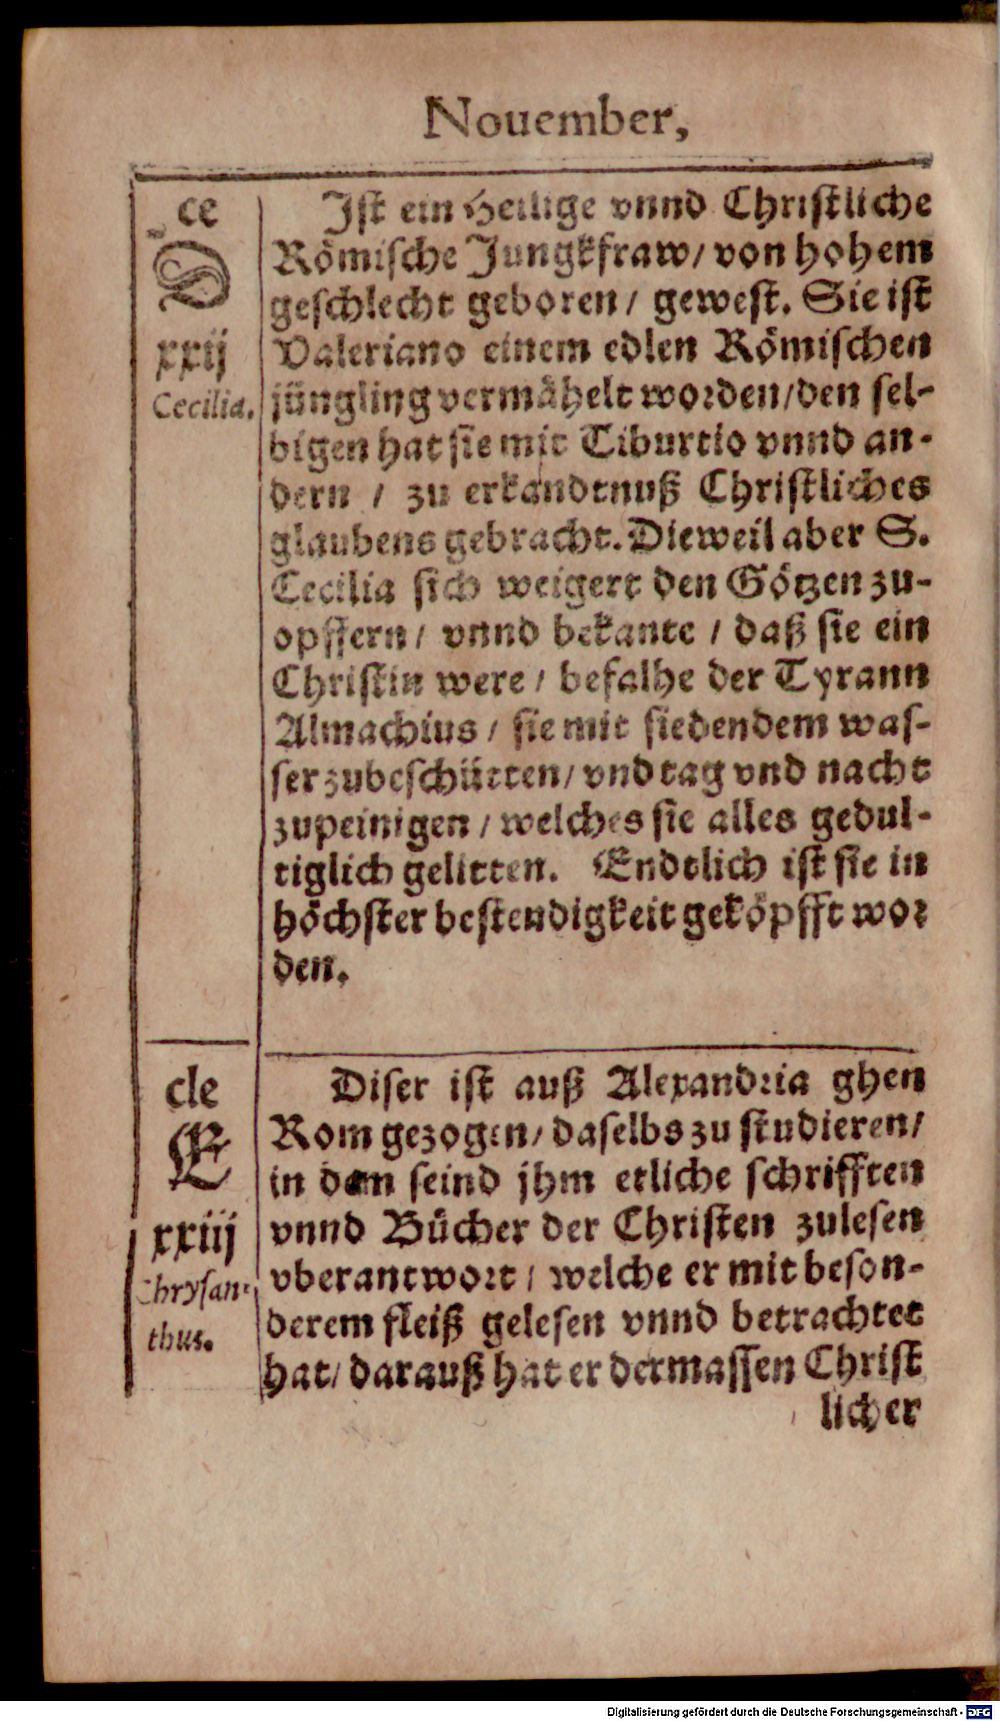 Nouember,
ce
D
xxij
Cecilia.
Jst ein Heilige vnnd Christliche
Römische Jungkfraw/ von hohem
geschlecht geboren/ gewest. Sie ist
Valeriano einem edlen Römischen
jüngling vermähelt worden/den sel-
bigen hat sie mit Tiburtio vnnd an-
dern / zu erkandtnuß Christliches
glaubens gebracht. Dieweil aber S.
Cecilia sich weigert den Götzen zu-
opffern/ vnnd bekante / daß sie ein
Christin were / befalhe der Tyrann
Almachius / sie mit siedendem was-
ser zubeschütten/ vnd tag vnd nacht
zupeinigen / welches sie alles gedul-
tiglich gelitten. Endtlich ist sie in
höchster bestendigkeit geköpfft wor
den.
cle
E
xxiij
Chrysan-
thus.
Diser ist auß Alexandria ghen
Rom gezogen/ daselbs zu studieren/
in dem seind jhm etliche schrifften
vnnd Bücher der Christen zulesen
vberantwort / welche er mit beson-
derem fleiß gelesen vnnd betrachtet
hat/ darauß hat er dermassen Christ
licher
Digitalisierung gefördert durch die Deutsche Forschungsgemeinschaft - DFG